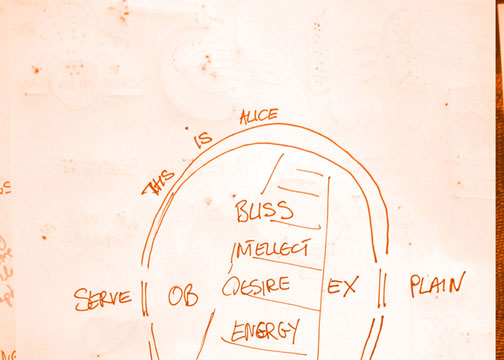 THIS IS ALICE
BLISS
INTELLECT
DESIRE
SERVE OB EX PLAIN
ENERGY